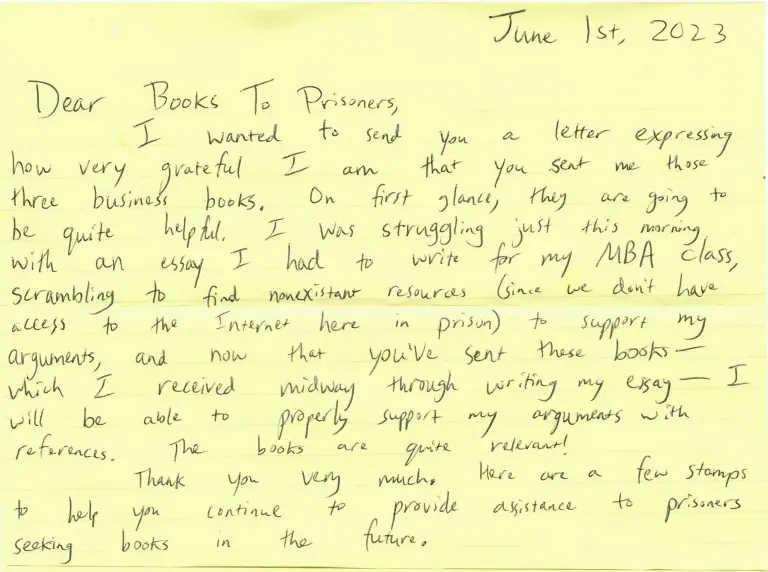 June 1st, 2023
Dear Books To Prisoners,
I wanted to send you a letter expressing
how very grateful I am that you sent me those
three business books. On first glance, they are going to
be quite helpful. I was struggling just this morning
with an essay I had to write for my MBA class,
scrambling to find nonexistant resources (since we don't have
access to the Internet here in prison) to support my
arguments, and now that you've sent these books—
which I received midway through writing my essay — I
will be able to properly support my arguments with
references. The books are quite relevant!
Thank you very much. Here are a few stamps
to help you continue to provide assistance to prisoners
seeking books in the future.